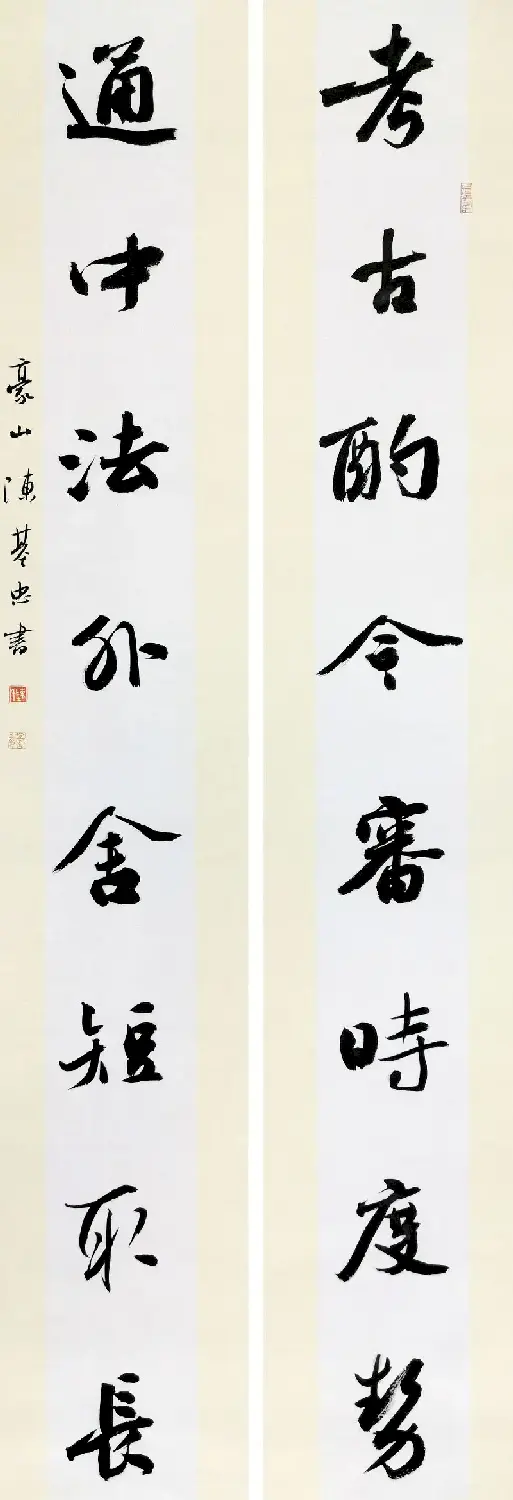 考古酌今審時度勢
通中法外舍短取長
豪山陳基忠書